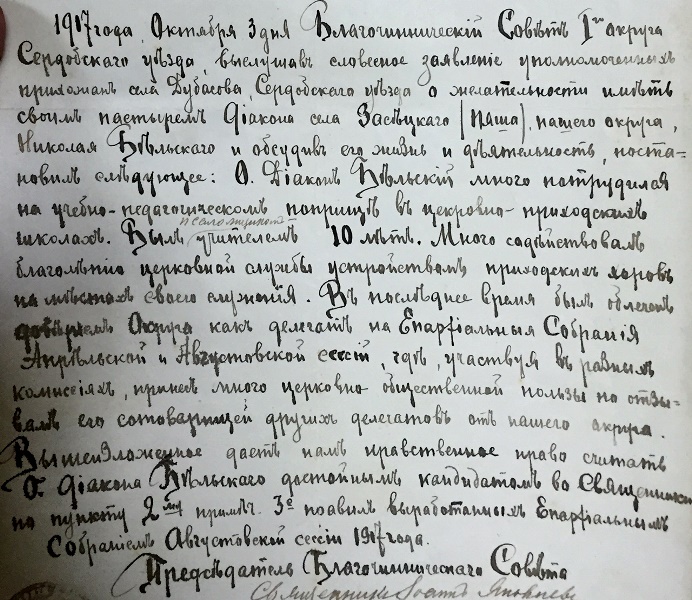 1917 года Октября 3 дня Благочинническій Совѣтъ 1го округа
Сердобскаго уѣзда, выслушавъ словесное заявленіе уполномоченныхъ
прихожанъ села Дубасова, Сердобскаго уѣзда о желательности имѣть
своимъ пастыремъ діакона села Засѣцкаго (Паша), нашего округа,
Николая Бѣльскаго и обсудивъ его жизнь и дѣятельность, поста-
новилъ слѣдующее: О. Діаконъ Бѣльскій много потрудился
на учебно-педагогическомъ поприщѣ въ церковно-приходскихъ
школахъ. Былъ учителемъ 10 лѣтъ. Много содѣйствовалъ
благолѣпію церковной службы устройствомъ приходскихъ хоровъ
на мѣстахъ своего служенія. Въ послѣднее время былъ облеченъ
довѣріемъ Округа какъ делегатъ на Епархіальныя Собранія
Апрѣльской и Августовской сессій, гдѣ, участвуя въ разныхъ
комиссіяхъ, принесъ много церковно общественной пользы по отзы-
вамъ его сотоварищей другихъ делегатовъ отъ нашего округа.
Вышеизложенное даетъ намъ нравственное право считать
О. діакона Бѣльскаго достойнымъ кандидатомъ во Священники
по пункту 2му примѣч. 3е правилъ выработанныхъ Епархіальнымъ
Собраніемъ Августовской сессіи 1917 года.
Предсѣдатель Благочинническаго Совѣта
Священникъ Іоаннъ Яковлевъ